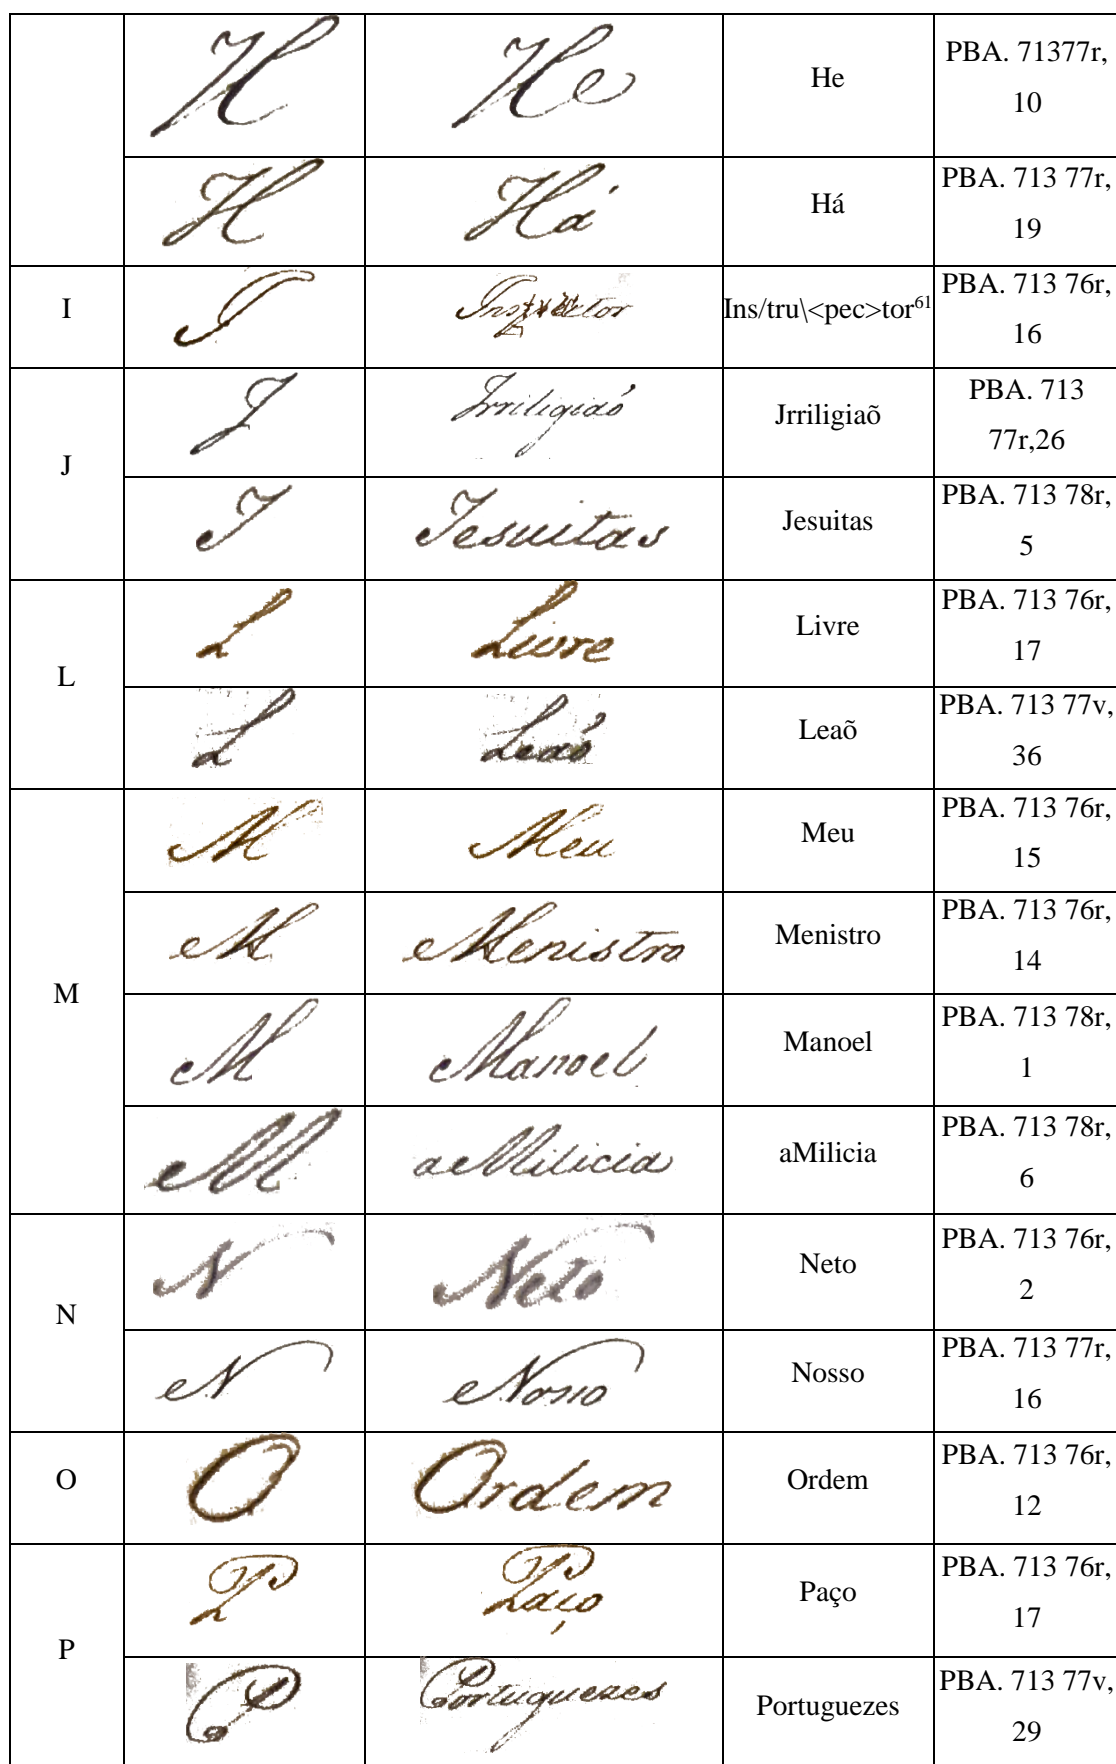 H He He PBA. 71377r, 10
H Há Há PBA. 713 77r, 19
I I Inspector Ins/tru\<pec>tor61 PBA. 713 76r, 16
J J Jrriligiaõ Jrriligiaõ PBA. 713 77r,26
J Jesuitas Jesuitas PBA. 713 78r, 5
L L Livre Livre PBA. 713 76r, 17
L Leaõ Leaõ PBA. 713 77v, 36
M M Meu Meu PBA. 713 76r, 15
M Menistro Menistro PBA. 713 76r, 14
M Manoel Manoel PBA. 713 78r, 1
M aMilicia aMilicia PBA. 713 78r, 6
N N Neto Neto PBA. 713 76r, 2
N Nosso Nosso PBA. 713 77r, 16
O O Ordem Ordem PBA. 713 76r, 12
P P Paço Paço PBA. 713 76r, 17
P Portuguezes Portuguezes PBA. 713 77v, 29